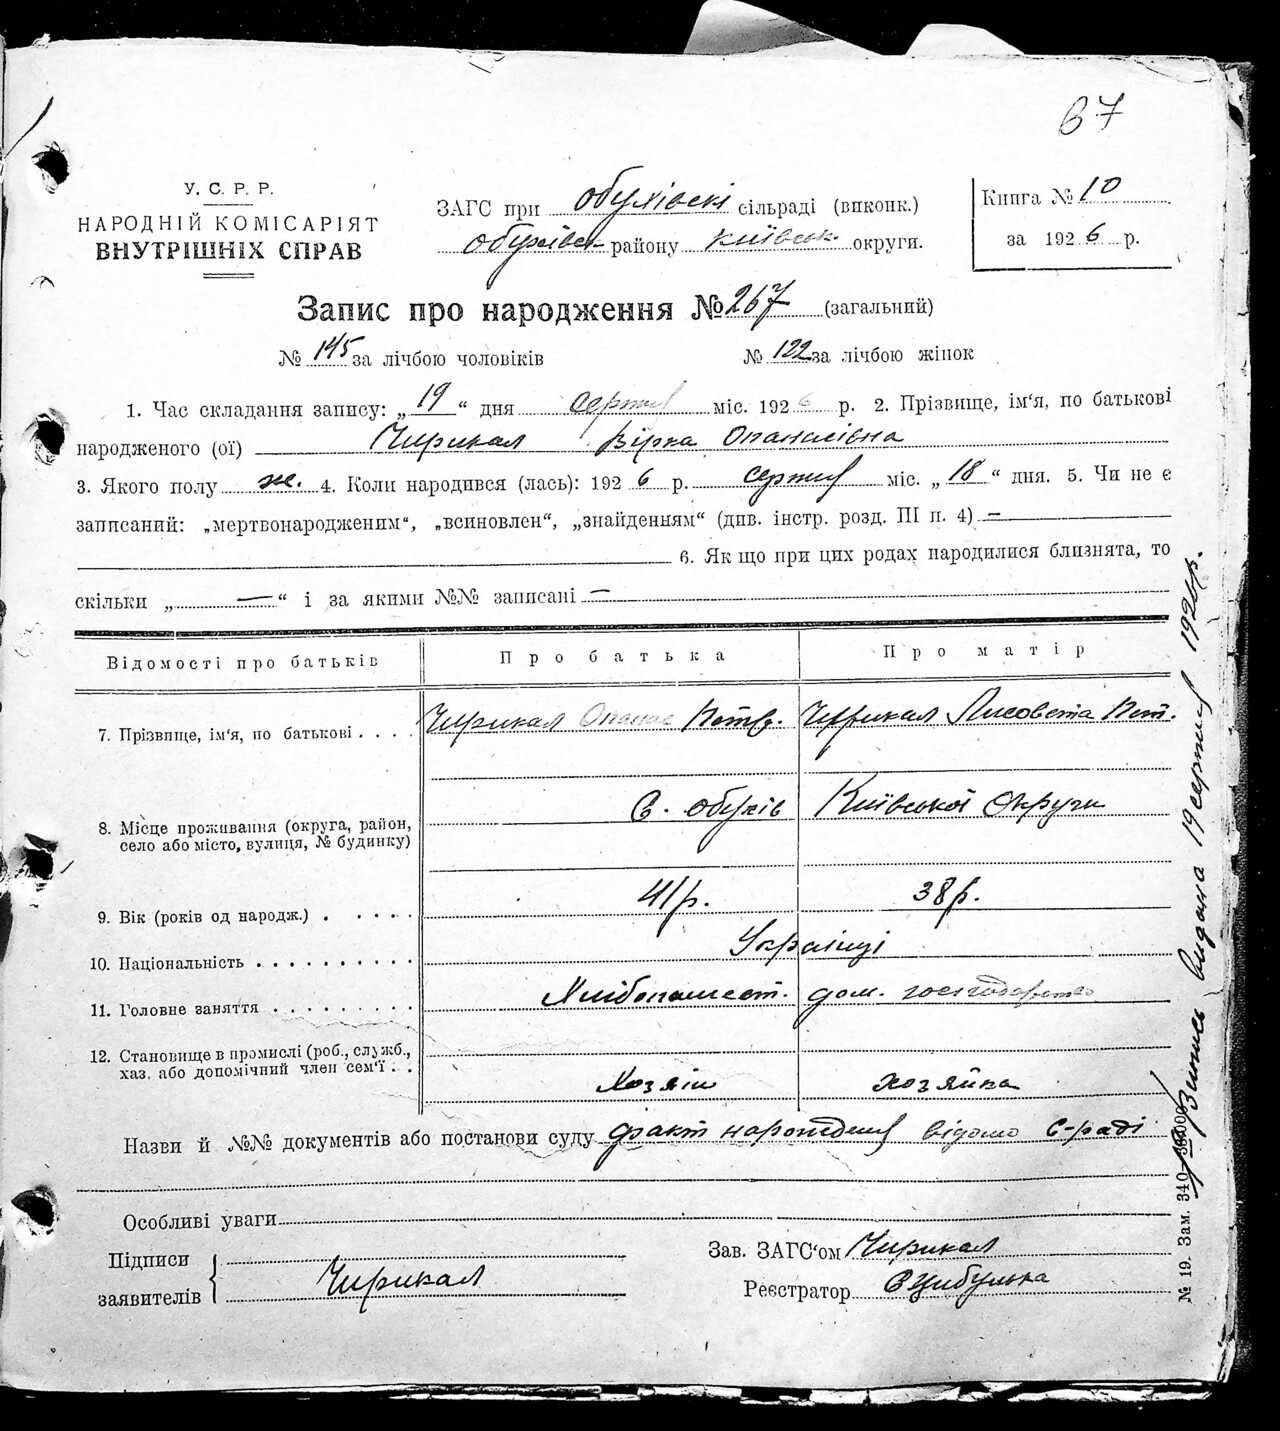 67
У. С. Р. Р.
НАРОДНІЙ КОМІСАРІЯТ
ВНУТРІШНІХ СПРАВ
ЗАГС при Обухівскі сільраді (виконк.)
Обухівск. району Київськ. округи.
Книга № 10
за 1926 р.
Запис про народження № 267 (загальний)
№ 145 за лічбою чоловіків № 122 за лічбою жінок
1. Час складання запису: „19“ дня серпня міс. 1926 р. 2. Прізвище, ім‘я, по батькові
народженого (ої) Чирикал Вірка Опанасівна
3. Якого полу ж. 4. Коли народився (лась): 1926 р. серпня міс. „18“ дня. 5. Чи не є
записаний: „мертвонародженим“, „всиновлен“, „знайденням“ (див. інстр. розд. ПІ п. 4) —
6. Як що при цих родах народилися близнята, то
скільки „ — “ і за якими №№ записані —
Відомості про батьків Про батька Про матір
7. Прізвище, ім‘я, по батькові . . . . Чирикал Опанас Петр. Чирикал Лисовета Пет.
8. Місце проживання (округа, район,
село або місто, вулиця, № будинку)
С. Обухів Київської Округи
9. Вік (років од народж.) . . . . . 41 р. 38 р.
10. Національність . . . . . . . . . . Українці
11. Головне заняття . . . . . . . . . Хлібопашест. дом. господарство
12. Становище в промислі (роб., служб.,
хаз. або допомічний член сем‘ї . .
Хозяін хозяйка
Назви й №№ документів або постанови суду факт народження відомо С-раді
Особливі уваги
Підписи
заявителів
Чирикал
Зав. ЗАГС‘ом Чирикал
Реєстратор Єцибулька
№ 19. Зам. 340
видана 19 серпня 1926 р.